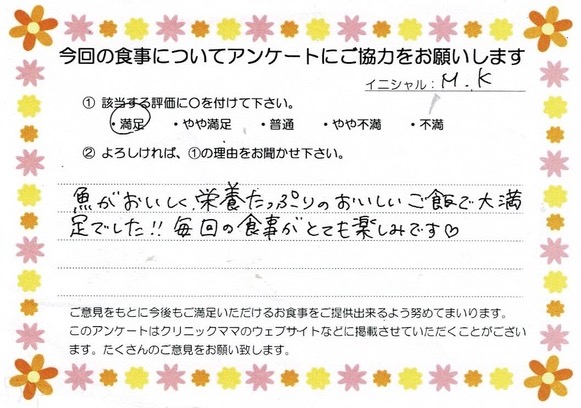 今回の食事についてアンケートにご協力をお願いします
イニシャル：M.K
① 該当する評価に○を付けて下さい。
・満足 ・やや満足 ・普通 ・やや不満 ・不満
② よろしければ、①の理由をお聞かせ下さい。
魚がおいしく、栄養たっぷりのおいしいご飯で大満
足でした!! 毎回の食事がとても楽しみです♡
ご意見をもとに今後もご満足いただけるお食事をご提供出来るよう努めてまいります。
このアンケートはクリニックママのウェブサイトなどに掲載させていただくことがござい
ます。たくさんのご意見をお願い致します。